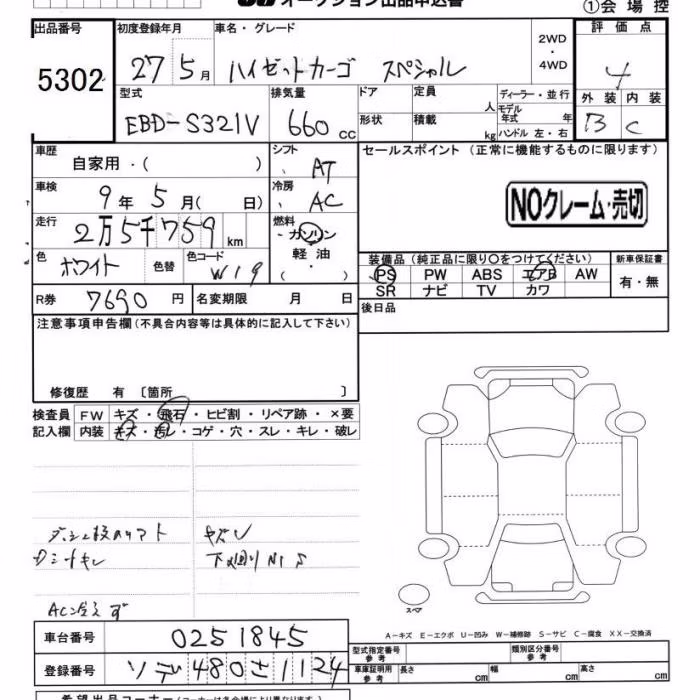 オークション出品申込書
①会場控
出品番号
5302
初度登録年月
27 5月
車名・グレード
ハイゼットカーゴ スペシャル
2WD
・
4WD
評価点
4
外装 内装
B C
型式
EBD-S321V
排気量
660 cc
ドア 定員 人
形状 積載 kg
ディーラー・並行
モデル年式 年
ハンドル 左・右
車歴
自家用・( )
シフト
AT
車検
9年5月( 日)
冷房
AC
走行
2万5千759 km
燃料
・ガソリン
軽油
( ・ )
色
ホワイト
色替
色コード
W19
R券 7690円
名変期限 月 日
セールスポイント(正常に機能するものに限ります)
NOクレーム・売切
装備品(純正品に限り○をつけてください)
PS PW ABS エアB AW
SR ナビ TV カワ
新車保証書
有・無
後日品
注意事項申告欄(不具合内容等は具体的に記入して下さい)
修復歴 有 〔箇所 〕
検査員 FW キズ・飛石・ヒビ割・リペア跡・×要
記入欄 内装 キズ・汚レ・コゲ・穴・スレ・キレ・破レ
キズ
AC冷えず
スペア
A-キズ E-エクボ U-凹み W-補修跡 S-サビ C-腐食 XX-交換済
車台番号 0251845
登録番号 480 さ 1124
型式指定番号 参考
類別区分番号 参考
車庫証明用 参考 長さ cm 幅 cm 高さ cm
希望出品コーナー(コーナーは各会場により異なります。)